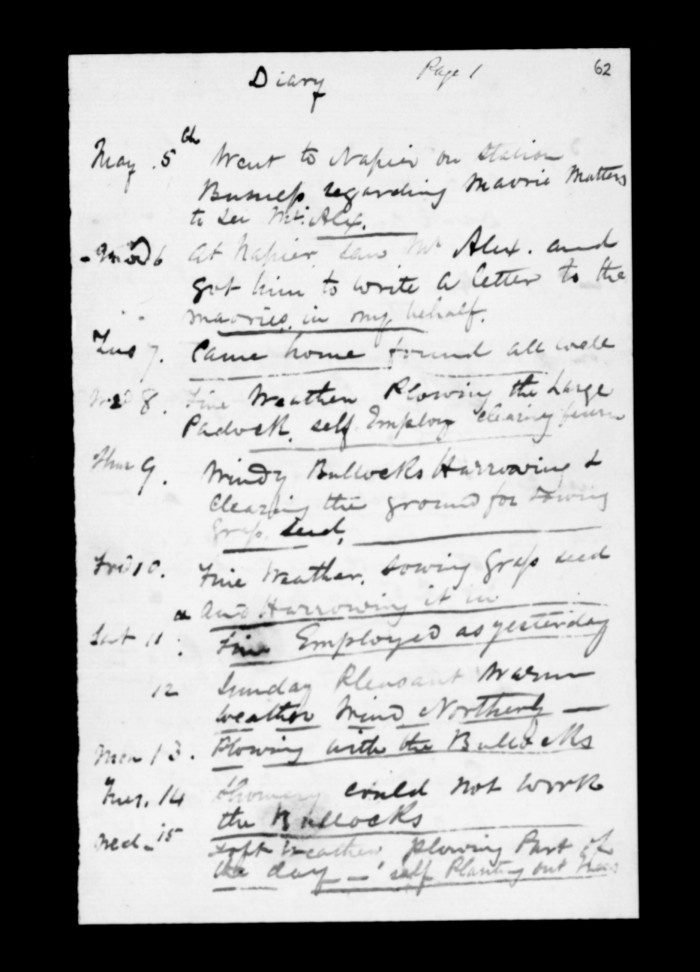 Diary Page 1 62
May 5th Went to Napier on Station
Business regarding Maorie Matters
to See Mr. Alex.
6 at Napier Saw Mr Alex. and
got him to write a letter to the
maories, in my behalf.
Tus 7. Came home found all well
Wed 8. Fine Weather Plowing the Large
Padock, self Employ clearing
Thur 9. Windy Bullocks Harrowing &
Clearing the ground for sowing
Grass Seed,
Frid 10. Fine Weather. Sowing Grass seed
and Harrowing it in
Sat 11. Fine Employed as yesterday
12 Sunday Pleasant Warm
weather Wind Northerly
Mon 13. Plowing with the Bullocks
Tues. 14 Showery could not work
the Bullocks
Wed. 15 Soft Weather plowing Part of
the day - self Planting out Trees